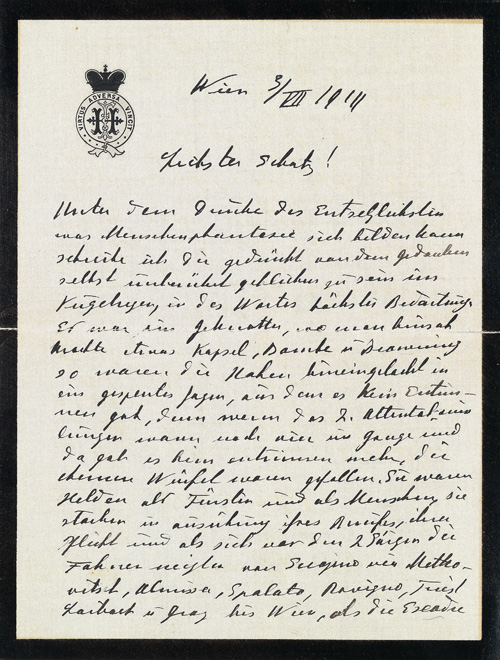 VIRTUS ADVERSA VINCIT
H
Wien 3/VII 1914
Liebster Schatz!
Unter dem Drucke des Entsetzlichsten
was Menschenphantasie sich bilden kann
schreibe ich Dir gedrückt von dem Gedanken
selbst unberührt geblieben zu sein im
Kugelregen, in des Wortes höchster Bedeutung.
Er war ein, wo man hinsah
machte etwas Kapsel, Bombe u Browning
so waren die Hohen hineingelockt in
ein gesperrtes Jagen, aus dem es kein Entrin-
nen gab, denn wenn das 2. Attentat miss
lungen waren noch vier im Gange und
da gab es kein entrinnen mehr, die
Würfel waren gefallen. Sie waren
Helden als Fürsten und als Menschen, sie
starben in Ausübung ihres Berufes, ihrer
Pflicht und als sich vor den 2 Särgen die
Fahnen neigten von Sarajevo via Metko-
vitsch, Almissa, Spalato, Rovigno, Triest
Laibach u Graz bis Wien, als die Escadre